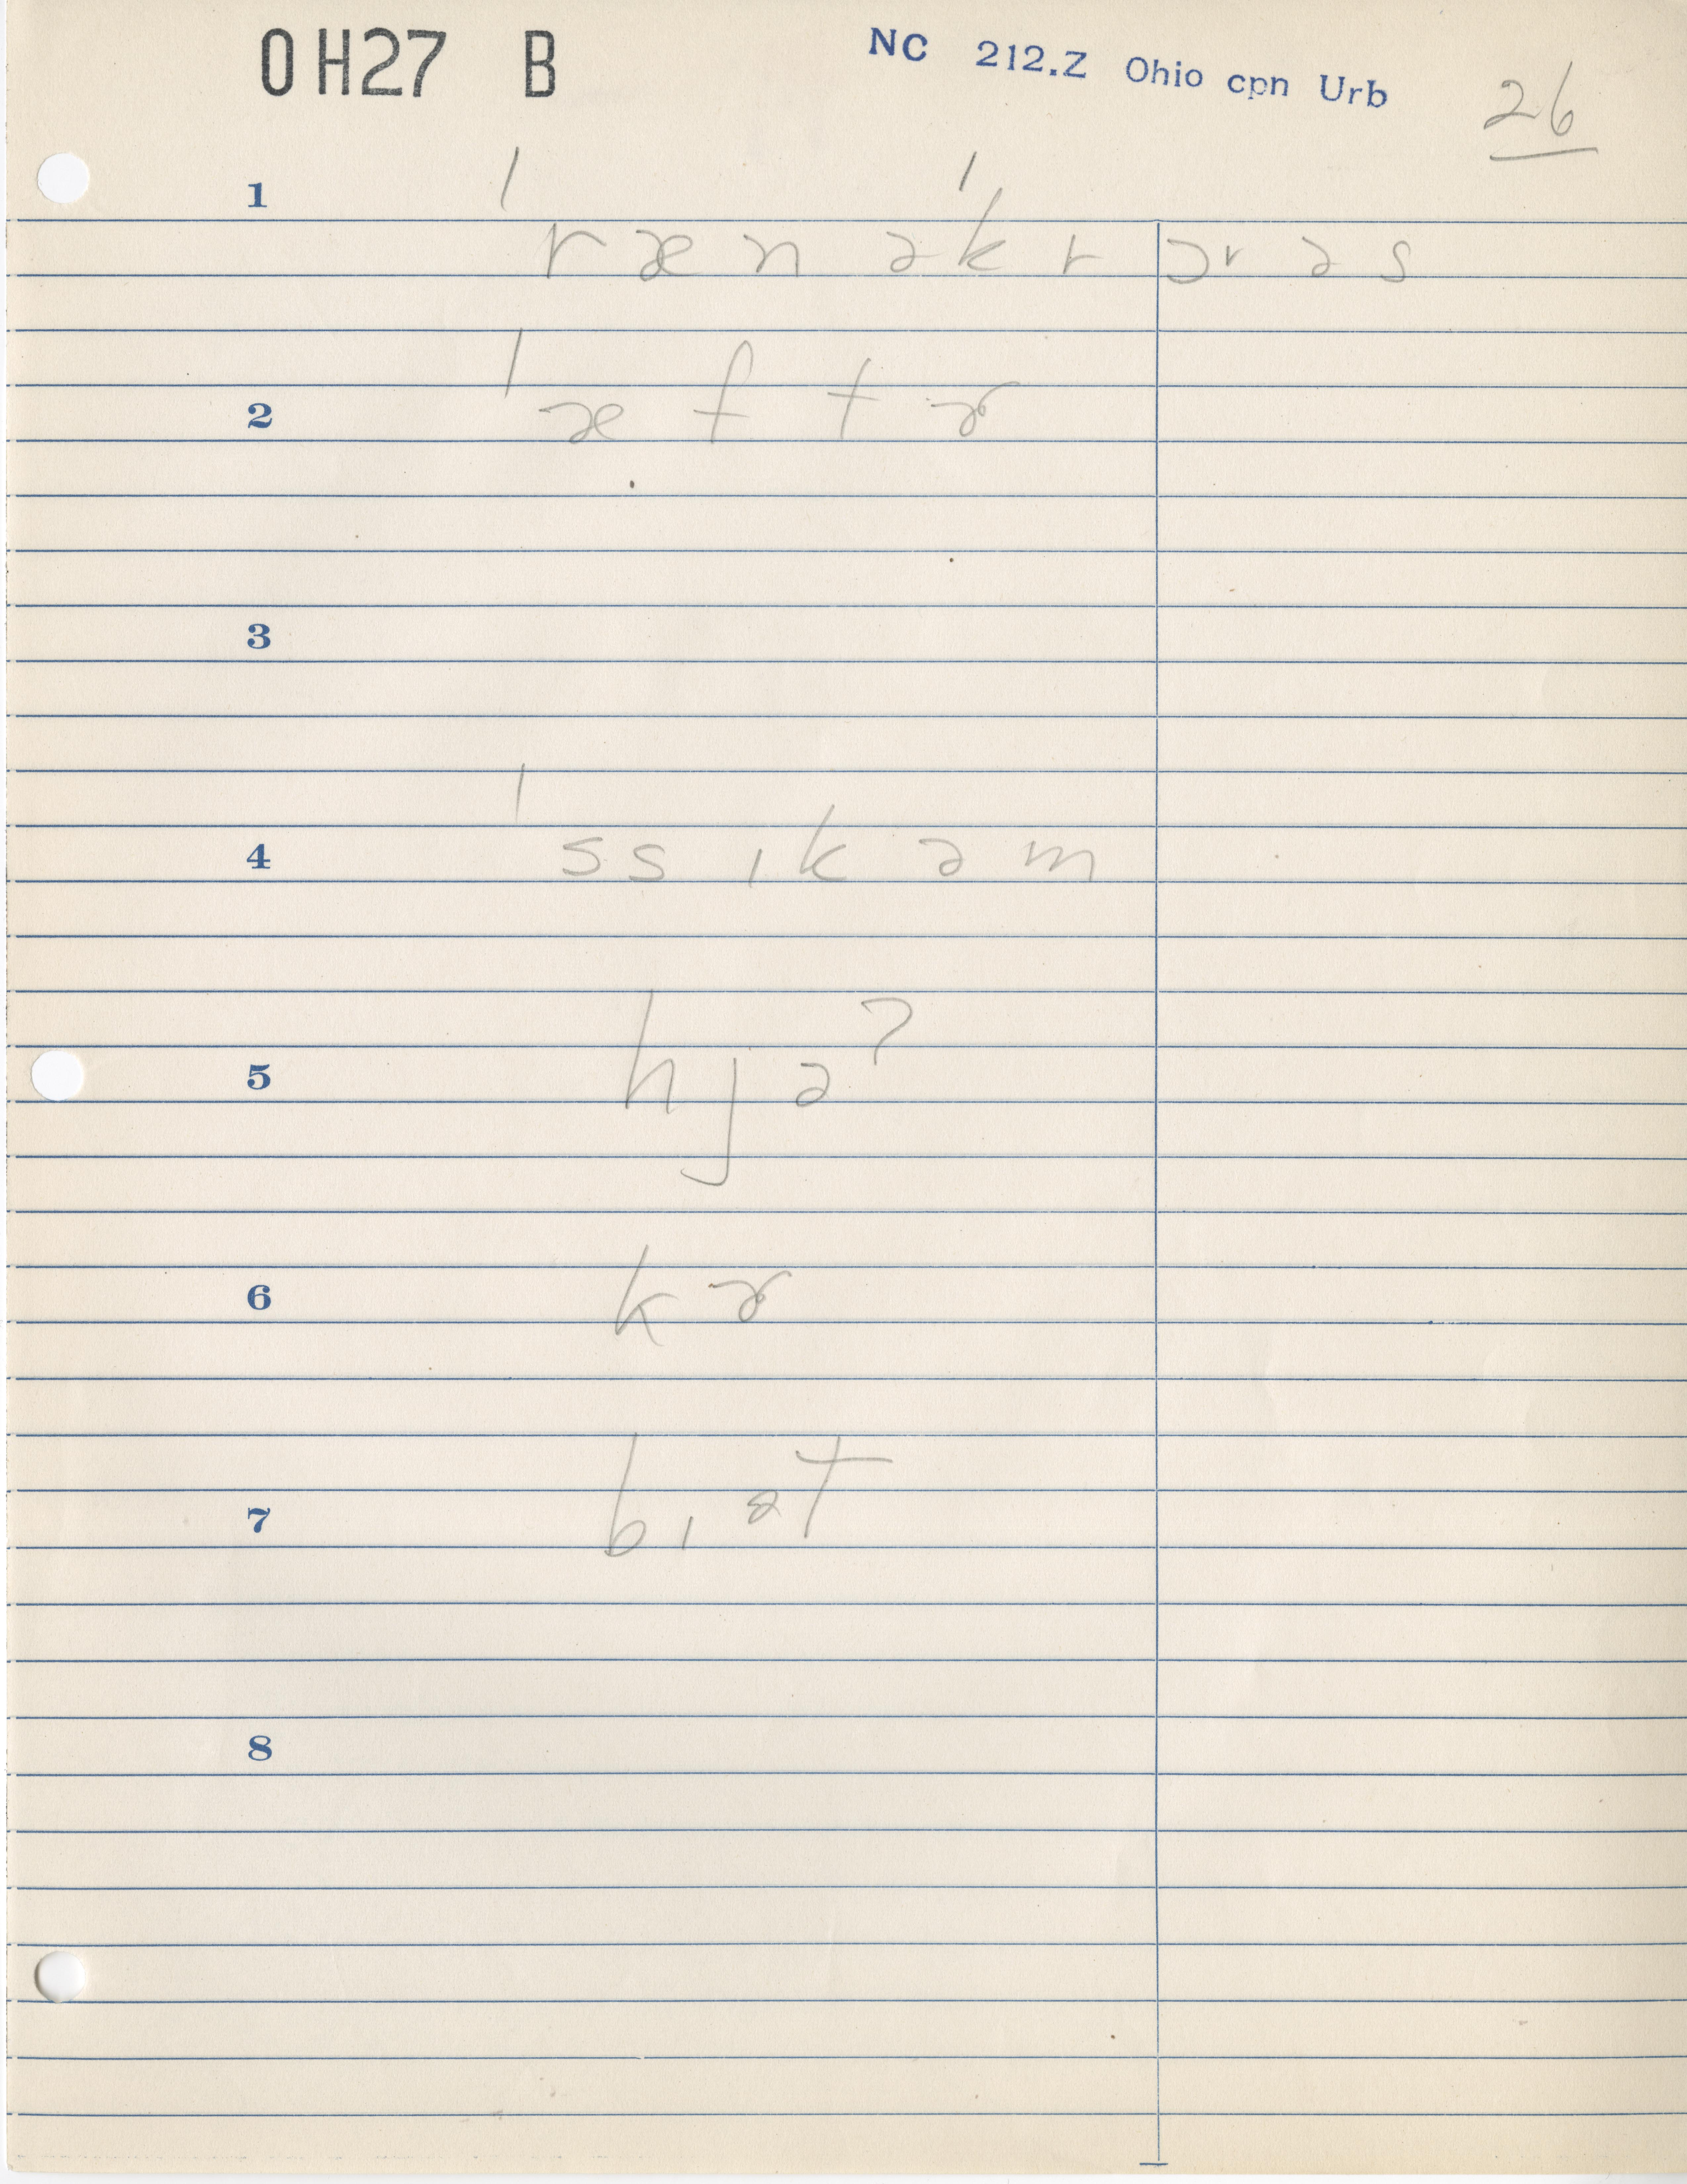 OH27 B
NC 212.Z Ohio cpn Urb
26
1 ˈ r æ n ə ˈk r ɔr ə s
2 ˈ æ f t ɚ
3
4 ˈ s s ɪ k ə m
5 h j ə ʔ
6 k ɚ
7 b ɪ ə t
8